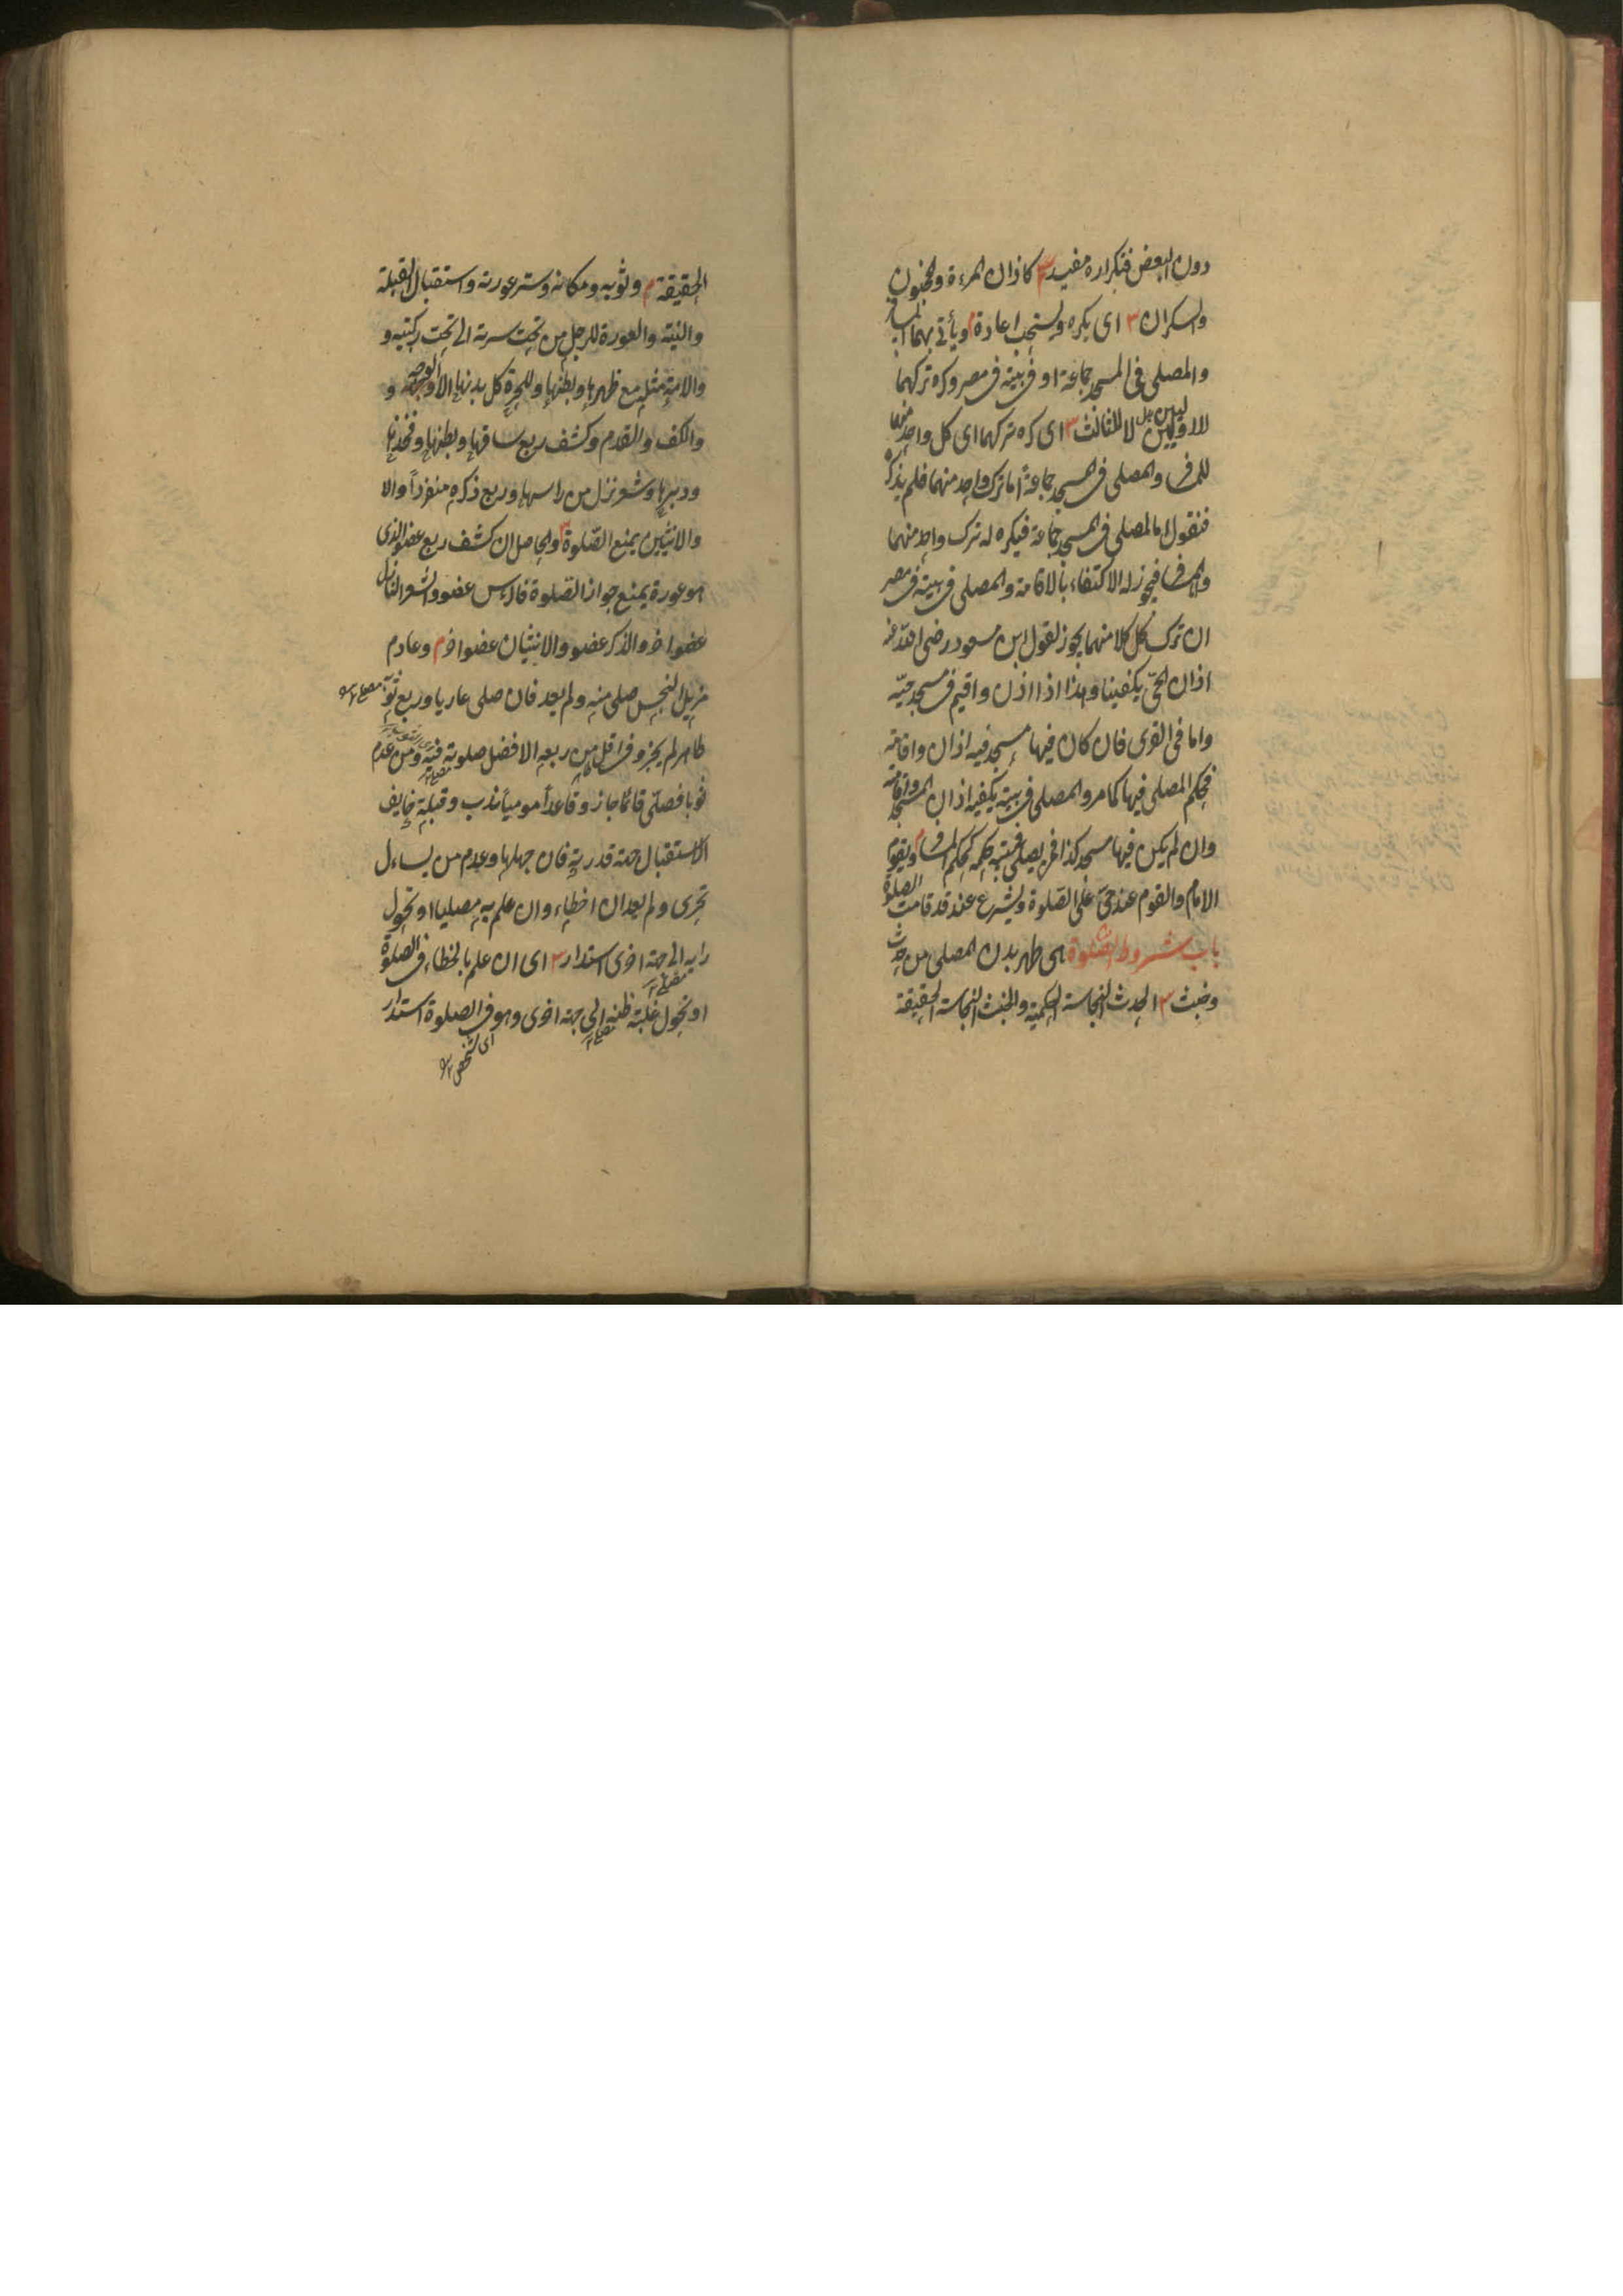 دون البعض فتكراره مفيد م كاذان المرءة والمجنون
والسكران ش اى يكره ويستحب اعادة م ويأتى بهما المسافر
والمصلى فى المسجد جماعة او فى بيته فى مصر وكره تركهما
للاولين لا للثالث ش اى كره تركهما اى كل واحد منهما
للمسافر والمصلى فى المسجد جماعة اما ترك واحد منهما فلم يذكره
فنقول اما المصلى فى المسجد جماعة فيكره له ترك واحد منهما
والمسافر فيجوز له الاكتفاء بالاقامة والمصلى فى بيته فى مصر
ان ترك كل كلا منهما يجوز لقول ابن مسعود رضى الله عنه
اذان الحىّ يكفينا وهذا اذا اذن واقيم فى مسجد حيّه
واما فى القرى فان كان فيها مسجد فيه اذان واقامة
فحكم المصلى فيها كما مر والمصلى فى بيته يكفيه اذان المسجد واقامته
وان لم يكن فيها مسجد كذا فمن يصلى فى بيته حكمه كحكم المسافر م ويقوم
الامام والقوم عند حىّ على الصّلوة ويشرع عند قد قامت الصلوة
باب شروط الصّلوة هى طهر بدن المصلى من حدث
وخبث ش الحدث النجاسة الحكمية والخبث النجاسة الحقيقة
الحقيقة م وثوبه ومكانه وستر عورته واستقبال القبلة
والنية والعورة للرجل من تحت سرته الى تحت ركبتيه و
والامة مثله مع ظهرها وبطنها وللحرة كل بدنها الا الوجه و
والكف والقدم وكشف ربع ساقها وبطنها وفخذها
ودبرها وشعر نزل من راسها وربع ذكره منفرداً والا
والانثيين يمنع الصّلوة ش والحاصل ان كشف ربع عضو الذى
هو عورة يمنع جواز الصّلوة فالرأس عضو والشعر النازل
عضو اخر والذكر عضو والانثيان عضو اخر م وعادم
مزيل النجس صلى منه ولم يعد فان صلى عاريا وربع ثوبه
طاهر لم يجز وفى اقل من ربعه الافضل صلوته فيه ومن عدم
ثوبا فصلّى قائما جاز وقاعداً موميا ندب وقبلة خايف
الاستقبال جهة قدرته فان جهلها وعدم من يساءل
تحرى ولم يعد ان اخطاء وان علم به مصليا او تحول
رايه الى جهة اخرى استدار ش اى ان علم بالخطاء فى الصلوة
او تحول غلبة ظنه الى جهة اخرى وهو فى الصلوة استدار